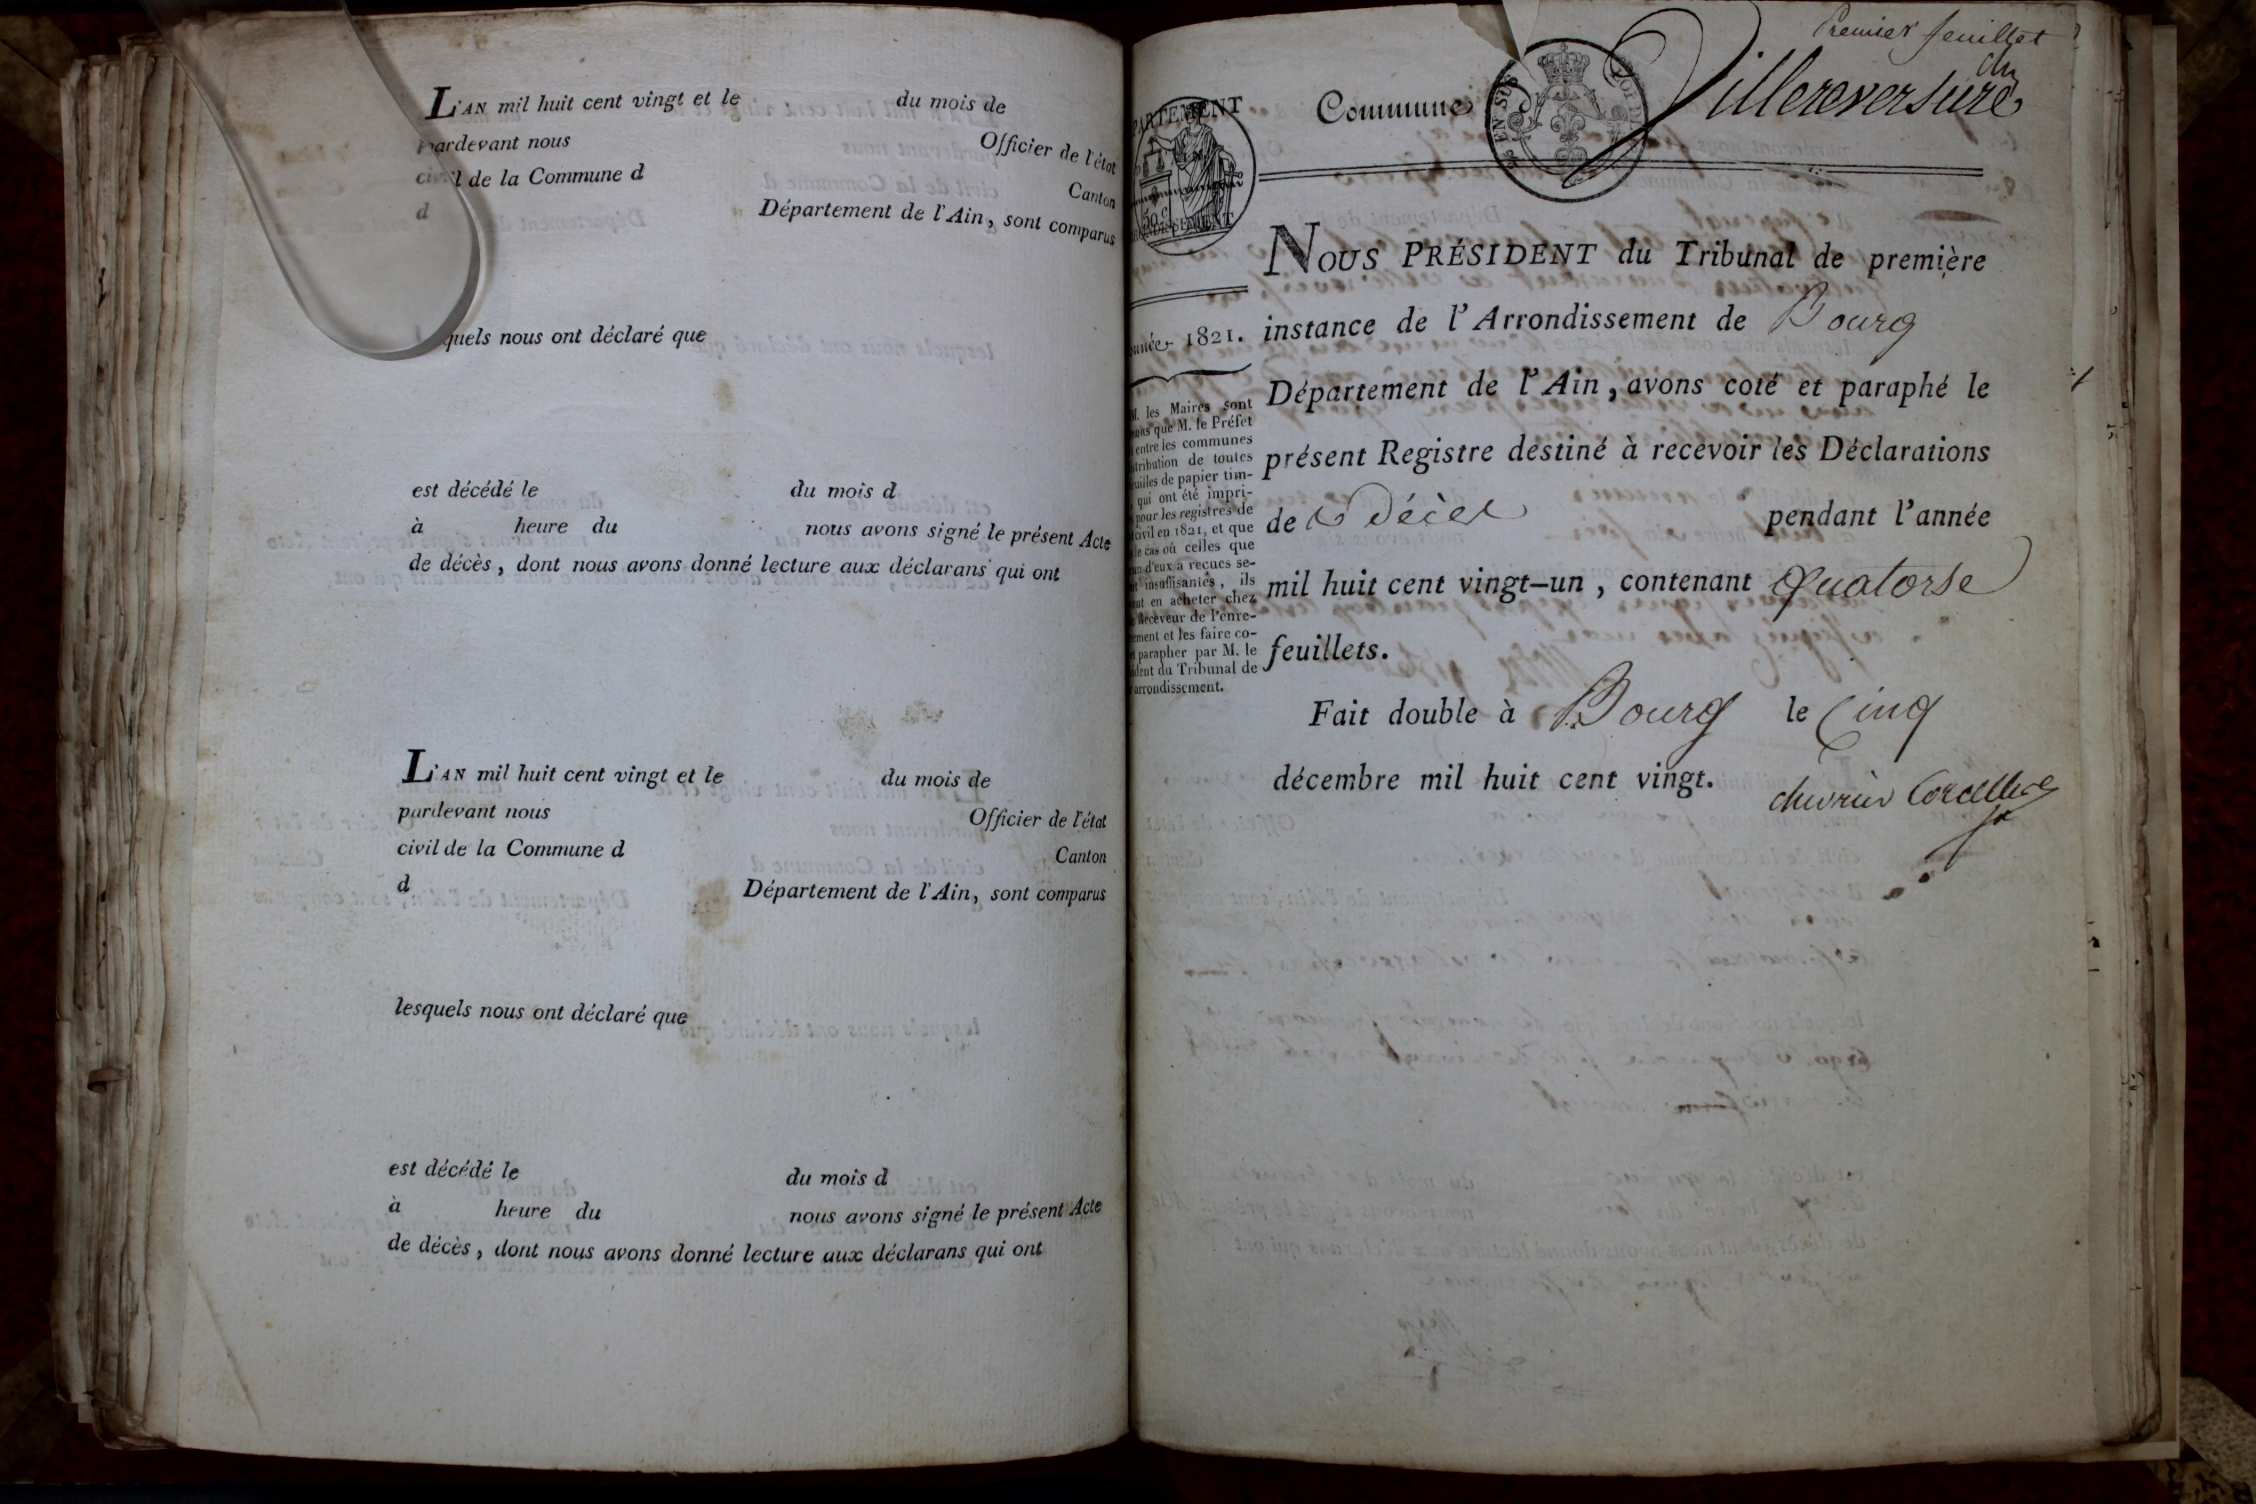 L'AN mil huit cent vingt et le du mois de
pardevant nous Officier de l'état
civil de la Commune d Canton
d Département de l'Ain, sont comparus
quels nous ont déclaré que
est décédé le du mois d
à heure du nous avons signé le présent Acte
de décès, dont nous avons donné lecture aux déclarans qui ont
L'AN mil huit cent vingt et le du mois de
pardevant nous Officier de l'état
civil de la Commune d Canton
d Département de l'Ain, sont comparus
lesquels nous ont déclaré que
est décédé le du mois d
à heure du nous avons signé le présent Acte
de décès, dont nous avons donné lecture aux déclarans qui ont
Premier feuillet
Commune Villereversure
EN SUS
PARTEMENT
50 c
NOUS PRÉSIDENT du Tribunal de première
instance de l'Arrondissement de Bourg
Département de l'Ain, avons coté et paraphé le
présent Registre destiné à recevoir les Déclarations
de Décès pendant l'année
mil huit cent vingt-un, contenant quatorse
feuillets.
Fait double à Bourg le Cinq
décembre mil huit cent vingt.
chevrier Corcelles
année 1821.
M. les Maires sont
que M. le Préfet
entre les communes
tribution de toutes
uilles de papier tim-
qui ont été impri-
pour les registres de
civil en 1821, et que
le cas où celles que
un d'eux a reçues se-
insuffisantes, ils
en acheter chez
Receveur de l'enre-
ement et les faire co-
parapher par M. le
ident du Tribunal de
arrondissement.